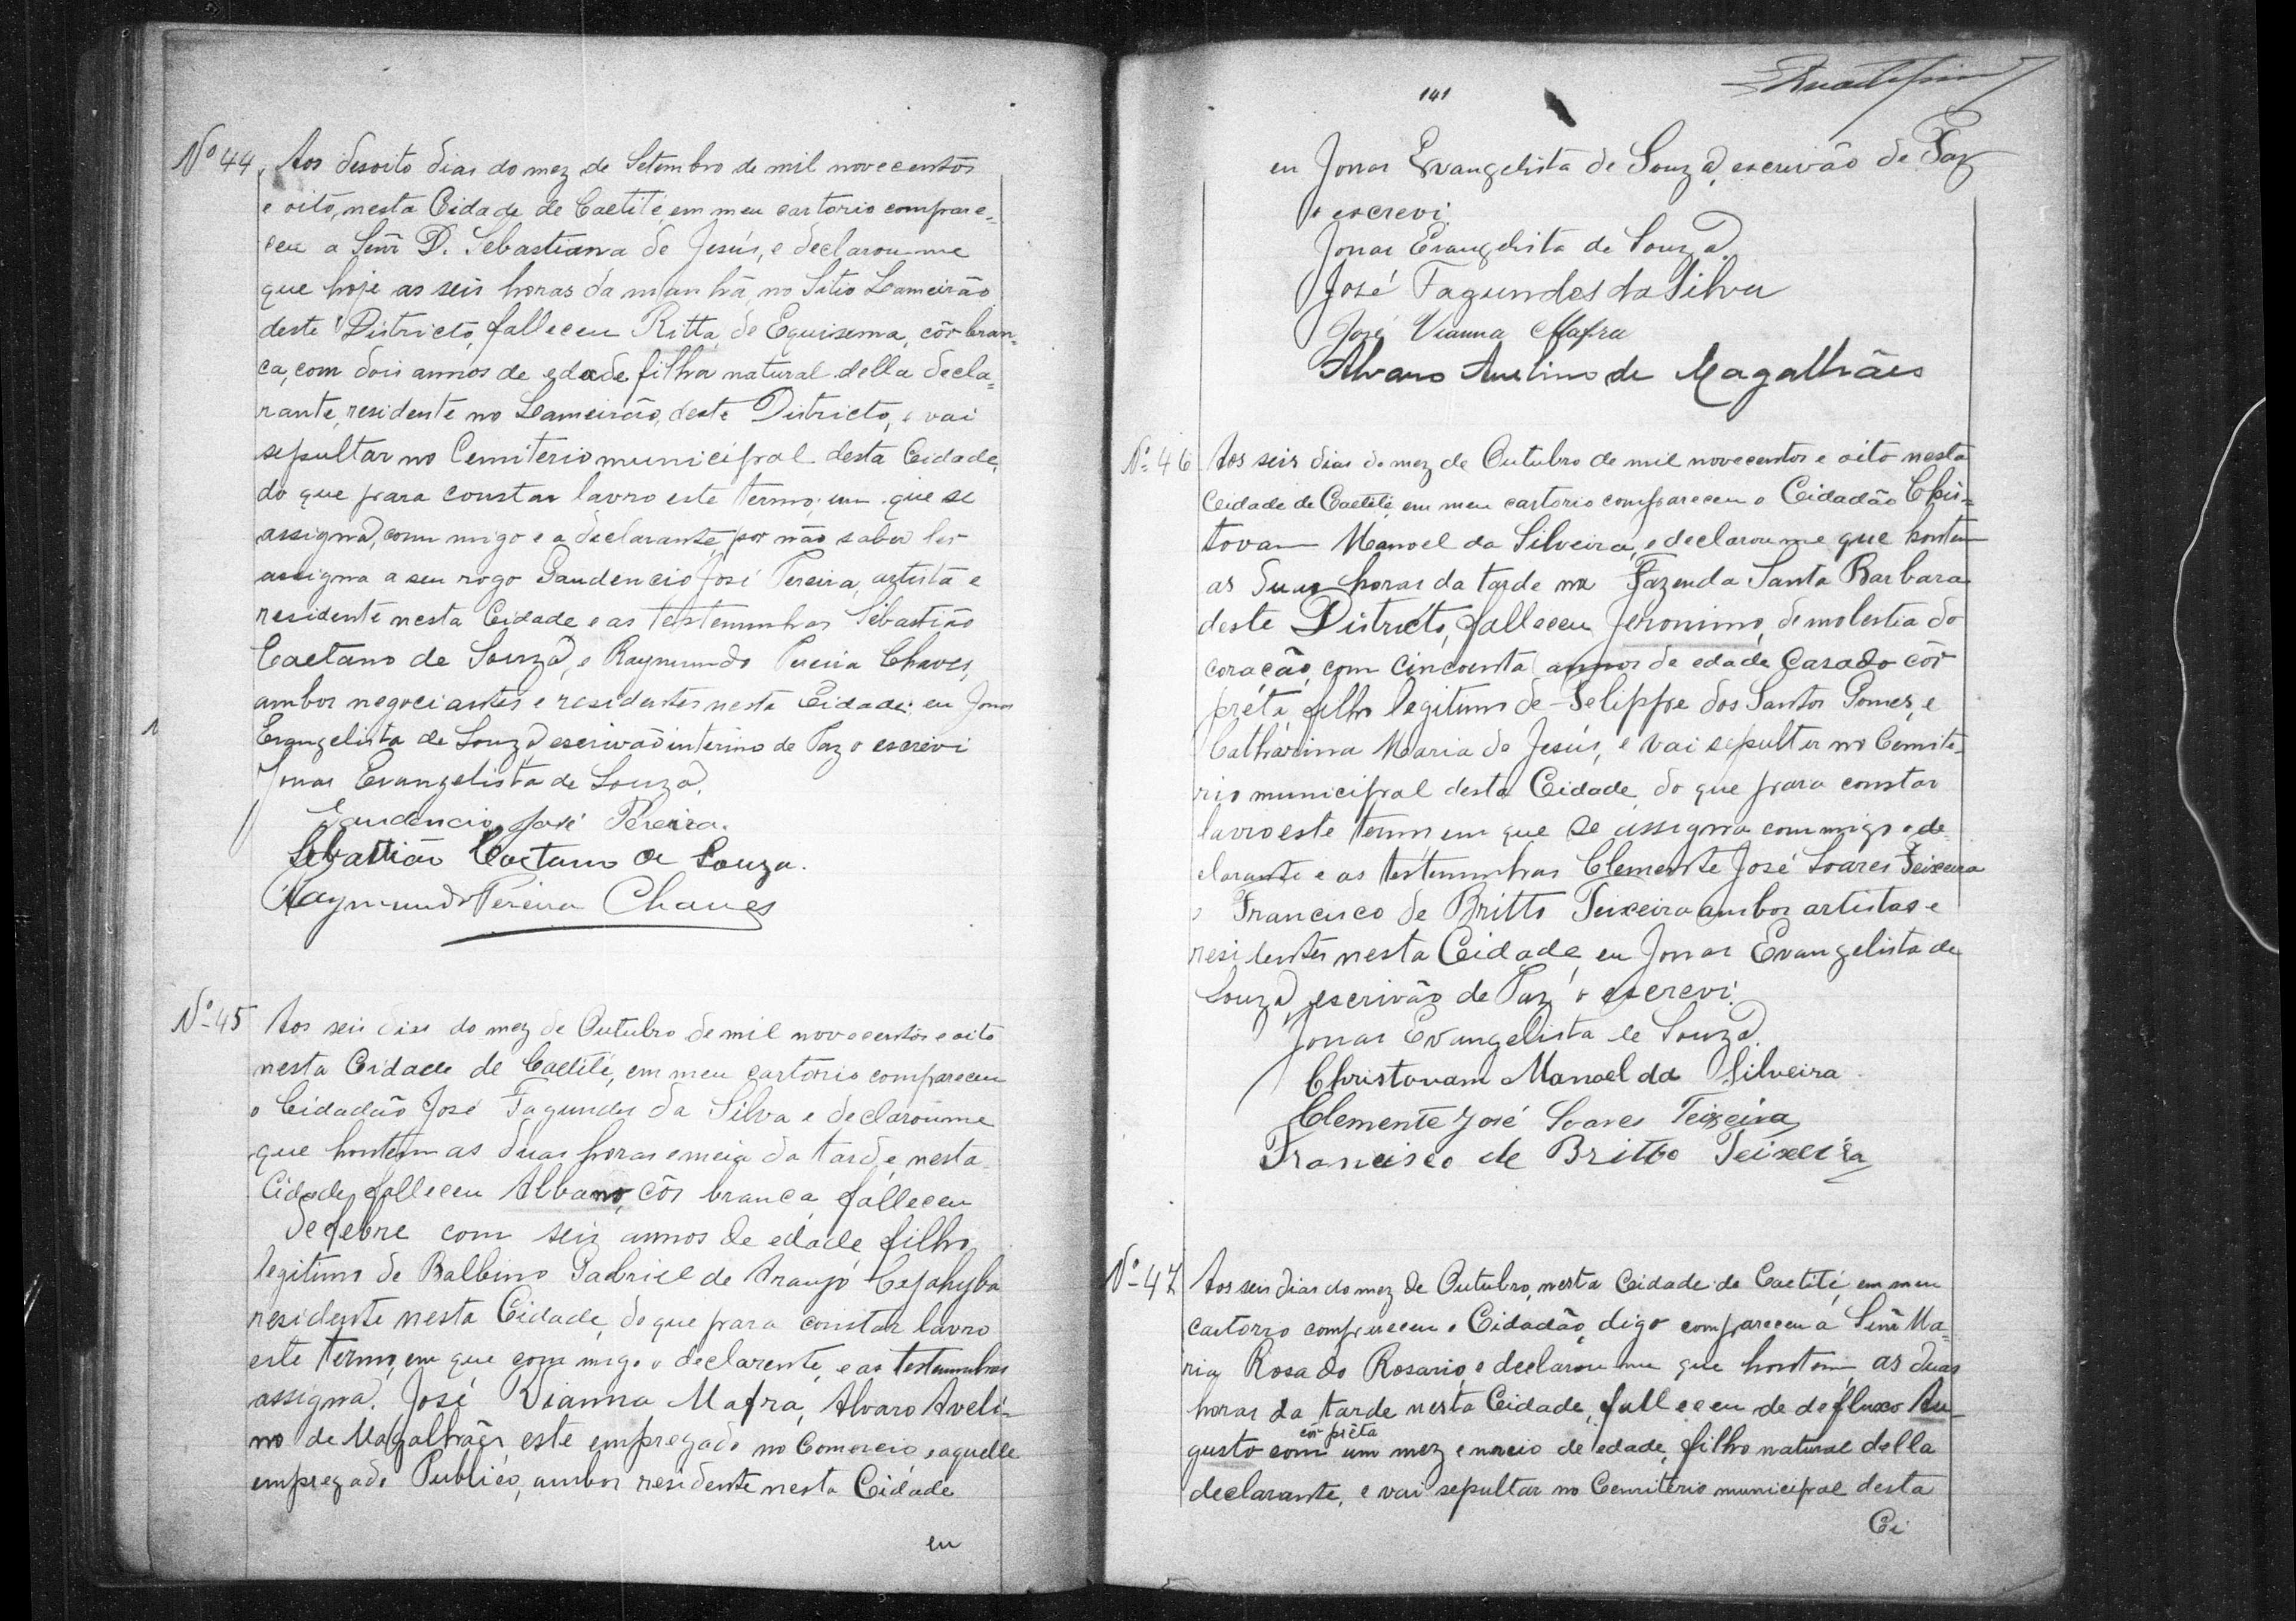 Nº 44. Aos desoito dias do mez de Setembro de mil novecentos
e oito, nesta Cidade de Caetité, em meu cartorio compare-
ceu a Senrª D. Sebastiana de Jesús, e declarou-me
que hoje as seis horas da manhã, no Sitio Lameirão
deste Districto, falleceu Ritta, de Equisema, côr bran-
ca, com dois annos de edade filha natural della decla-
rante, residente no Lameirão, deste Districto, e vai
sepultar no Cemiterio municipal desta Cidade,
do que para constar lavro este termo em que se
assigna, commigo e a declarante, por não saber ler
assigna a seu rogo Gaudencio José Pereira, artista e
residente nesta Cidade e as testemunhas Sebastião
Caetano de Souza, e Raymundo Pereira Chaves,
ambos negociantes e residentes nesta Cidade: eu Jonas
Evangelista de Souza escrivão interino de Paz o escrevi
Jonas Evangelista de Souza.
Gaudencio José Pereira.
Sebastião Caetano de Souza.
Raymundo Pereira Chaves
Nº 45 Aos seis dias do mez de Outubro de mil novecentos e oito
nesta Cidade de Caetité, em meu cartorio compareceu
o Cidadão José Fagundes da Silva e declarou me
que hontem as duas horas e meia da tarde, nesta
Cidade, falleceu Albano, côr branca, falleceu
de febre com seis annos de edade, filho
legitimo de Balbino Gabriel de Araujo Cajahyba
residente nesta Cidade, do que para constar lavro
este termo, em que com migo o declarente, e as testemunhas
assigna. José Vianna Mafra, Alvaro Aveli-
no de Magalhães, este empregado no Comercio, e aquelle
empregado Publico, ambos residente nesta Cidade
eu
141
eu Jonas Evangelista de Souza, escrivão de Paz
o escrevi.
Jonas Evangelista de Souza.
José Fagundes da Silva
José Vianna Mafra
Alvaro Avelino de Magalhães
Nº 46 Aos seis dias do mez de Outubro de mil novecentos e oito nesta
Cidade de Caetité, em meu cartorio compareceu o Cidadão Chris-
tovam Manoel da Silveira, e declarou me que hontem
as duas horas da tarde na Fazenda Santa Barbara
deste Districto, falleceu Jeronimo, de molestia do
coração, com cincoenta annos de edade Casado côr
préta, filho legitimo de Felippe dos Santos Gomes, e
Catharina Maria de Jesús, e vai sepulter no Cemite-
rio municipal desta Cidade, do que para constar
lavro este termo em que se assigna commigo o de-
clarante e as testemunhas Clemente José Soares Teixeira
e Francisco de Britto Teixeira ambos artistas e
residentes nesta Cidade, eu Jonas Evangelista de
Souza, escrivão de Paz o escrevi.
Jonas Evangelista de Souza.
Christovam Manoel da Silveira
Clemente José Soares Teixeira
Francisco de Britto Teixeira
Nº 47 Aos seis dias do mez de Outubro, nesta Cidade de Caetité, em meu
cartorio compareceu o Cidadão, digo compareceu a Senrª Ma-
ria Rosa do Rosario, e declarou me que hontem as duas
horas da tarde nesta Cidade, falleceu de defluxo Au-
côr préta
gusto com um mez e meio de edade, filho natural della
declarante, e vai sepultar no Cemiterio municipal desta
Ci